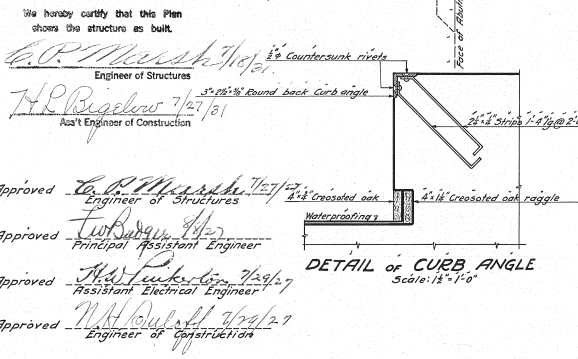 We hereby certify that this Plan
shows the structure as built.
C. P. Marsh 7/18/31
Engineer of Structures
H L Bigelow 7/27/31
Ass't Engineer of Construction
Approved C. P. Marsh 7/27/27
Engineer of Structures
Approved 8/8/27
Principal Assistant Engineer
Approved H.W. Pinkerton 7/29/27
Assistant Electrical Engineer
Approved 7/29/27
Engineer of Construction
Face of Abut
½"φ Countersunk rivets
Round back Curb angle
Strips 1'-4" lg@
Creosoted oak
Creosoted oak raggle
Waterproofing
DETAIL of CURB ANGLE
Scale: 1½"=1'-0"